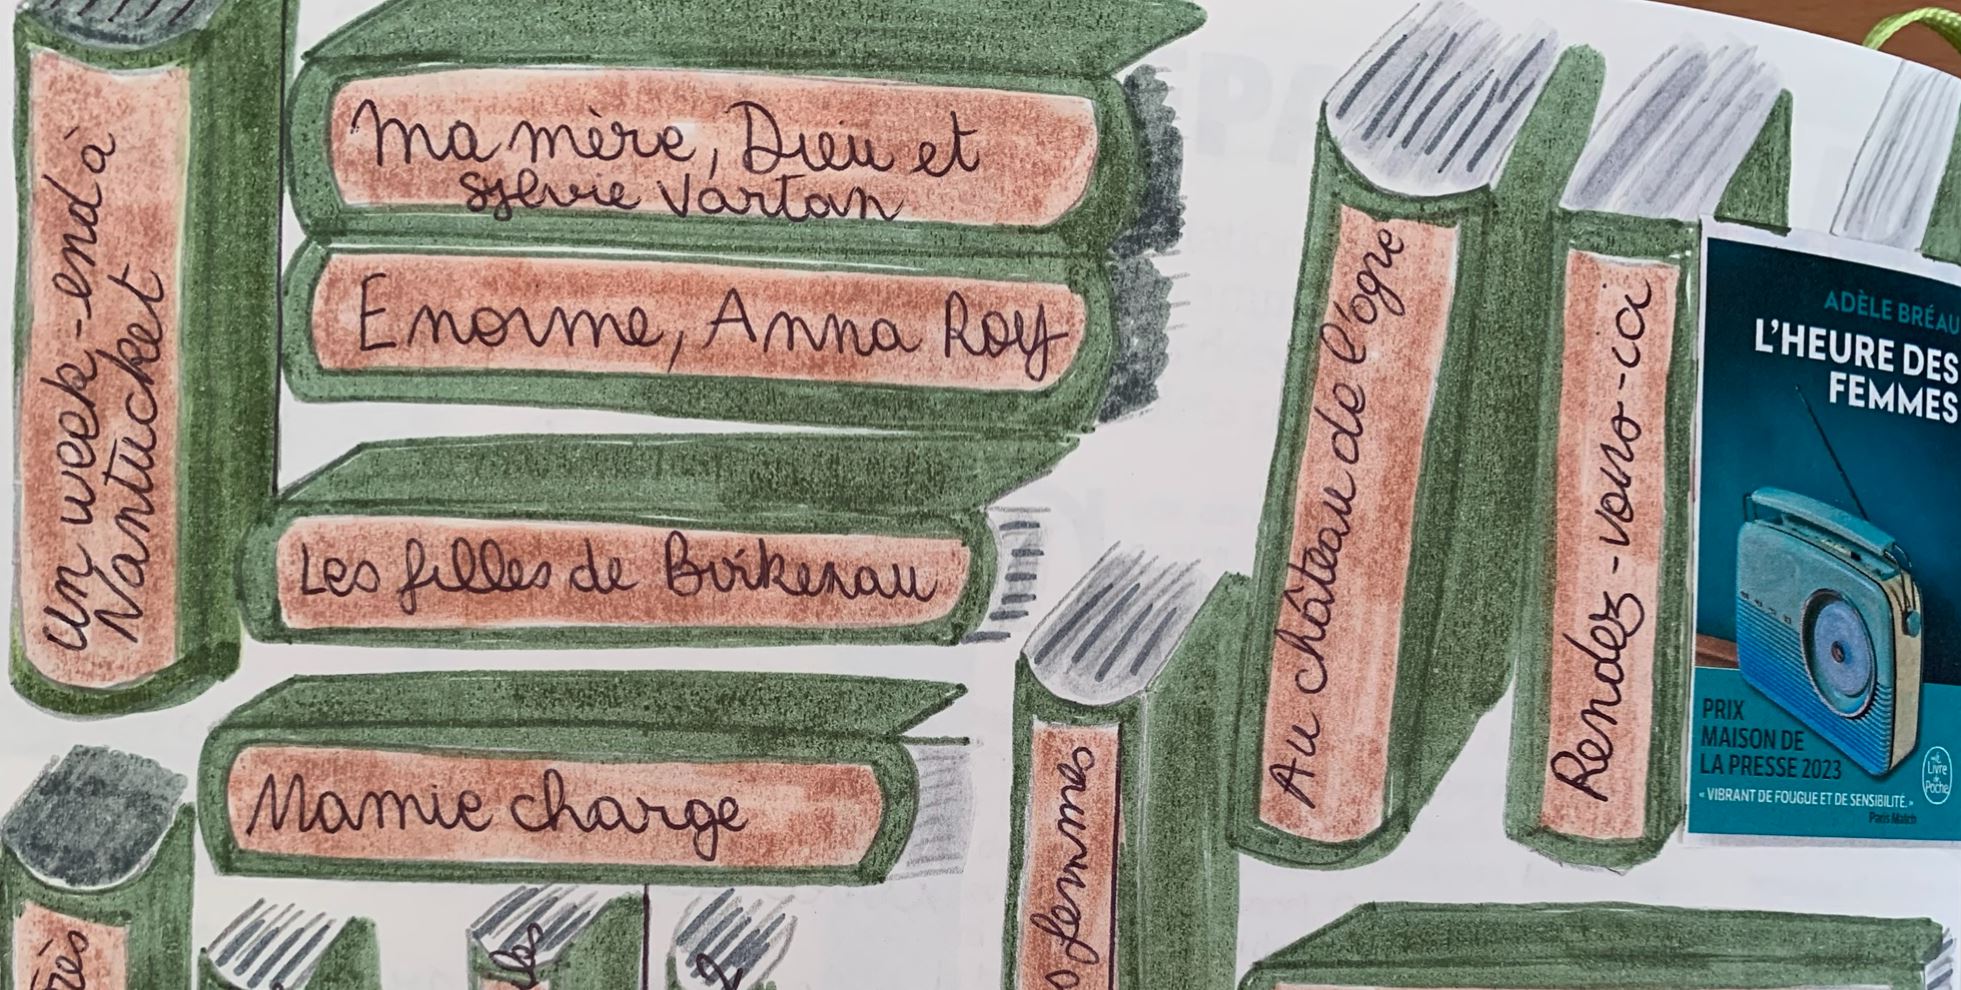 un week-end à
Nantucket
Ma mère, Dieu et
Sylvie Vartan
Enorme, Anna Roy
Les filles de Birkenau
Mamie charge
femmes
Au château de l'ogre
Rendez-vous-ci
ADÈLE BRÉAU
L'HEURE DES
FEMMES
PRIX
MAISON DE
LA PRESSE 2023
« VIBRANT DE FOUGUE ET DE SENSIBILITÉ. »
Paris Match
Le
Livre
de
Poche